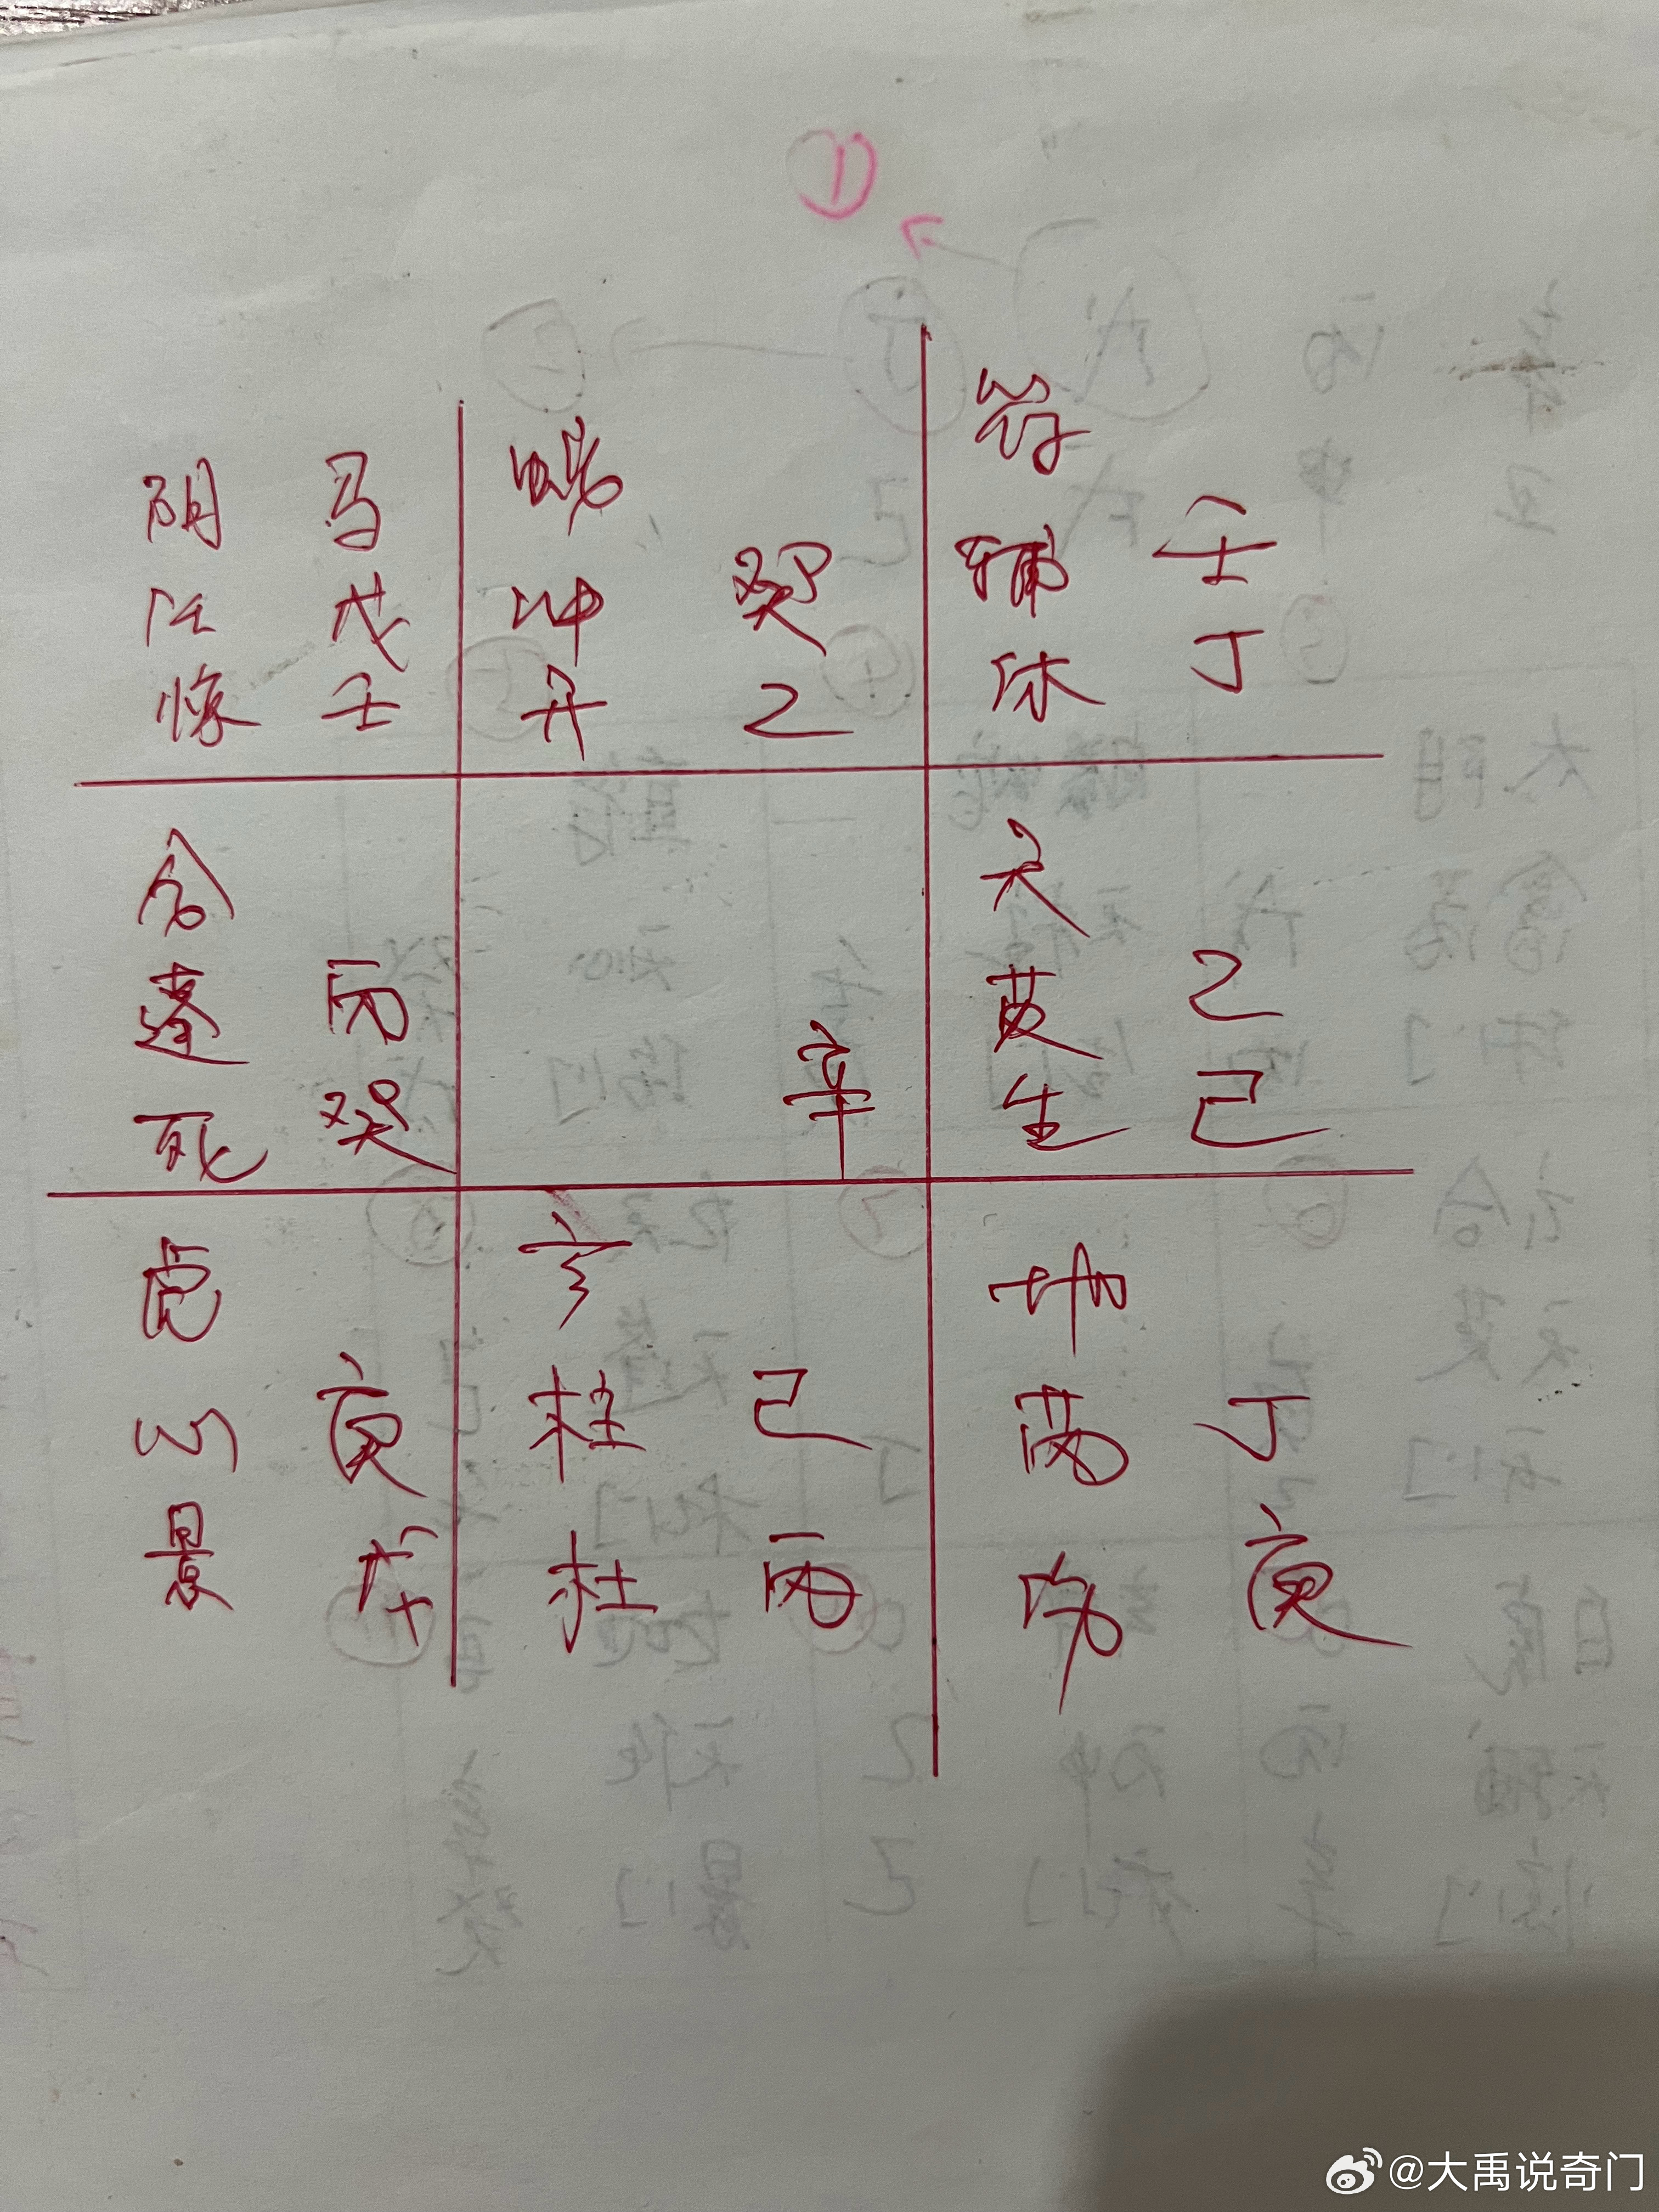 ①
阴 马
任 戊
惊 壬
蛇
冲 癸
开 乙
符
辅 壬
休 丁
合
蓬 丙
死 癸
辛
天
英 乙
生 己
虎
心 庚
景 戊
玄
柱 己
杜 丙
地
芮 丁
伤 庚
@大禹说奇门